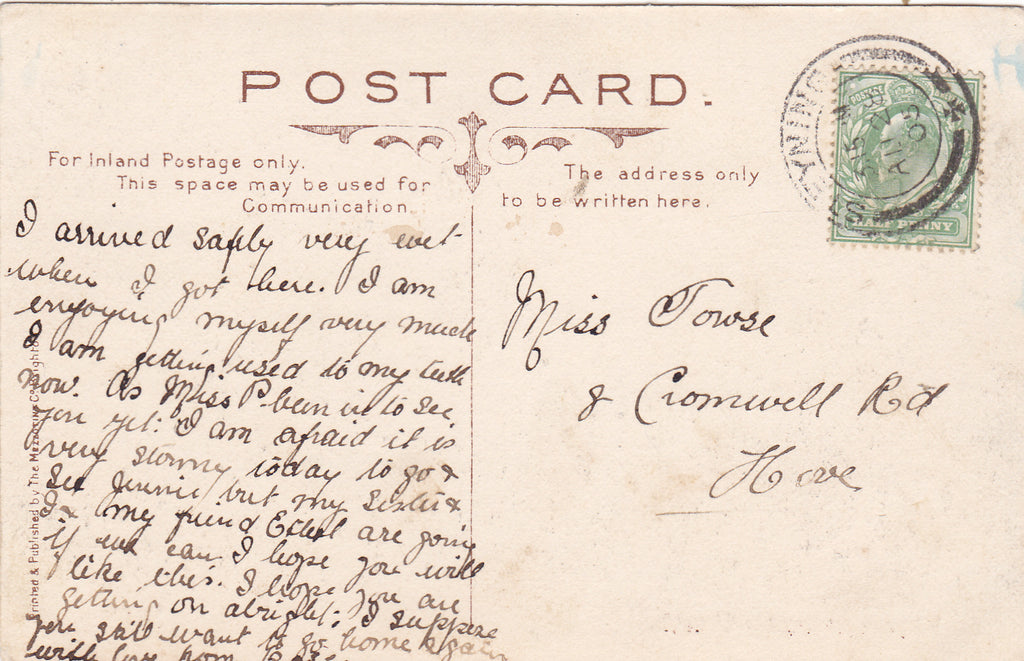 POST CARD.
For Inland Postage only.
This space may be used for
Communication.
The address only
to be written here.
STEYNING
HALF PENNY
I arrived safly very wet
when I got here. I am
enyoying myself very much
I am getting used to my teeth
now. As Miss P. been in to see
you yet. I am afraid it is
very stormy today to go &
see Jennie but my sister &
I & my friend Ethel are going
if we can I hope you will
like this. I hope you are
getting on alright. I suppose
you still want to go home again
with love from
Miss Towse
8 Cromwell Rd
Hove
Printed & Published by The Mezzotint Co Brighton